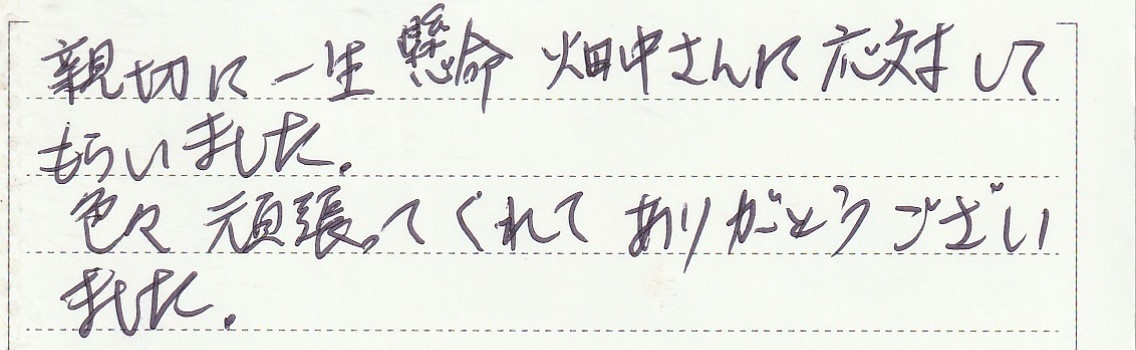 親切に一生懸命 畑中さんに応対して
もらいました。
色々 頑張ってくれて ありがとうござい
ました。